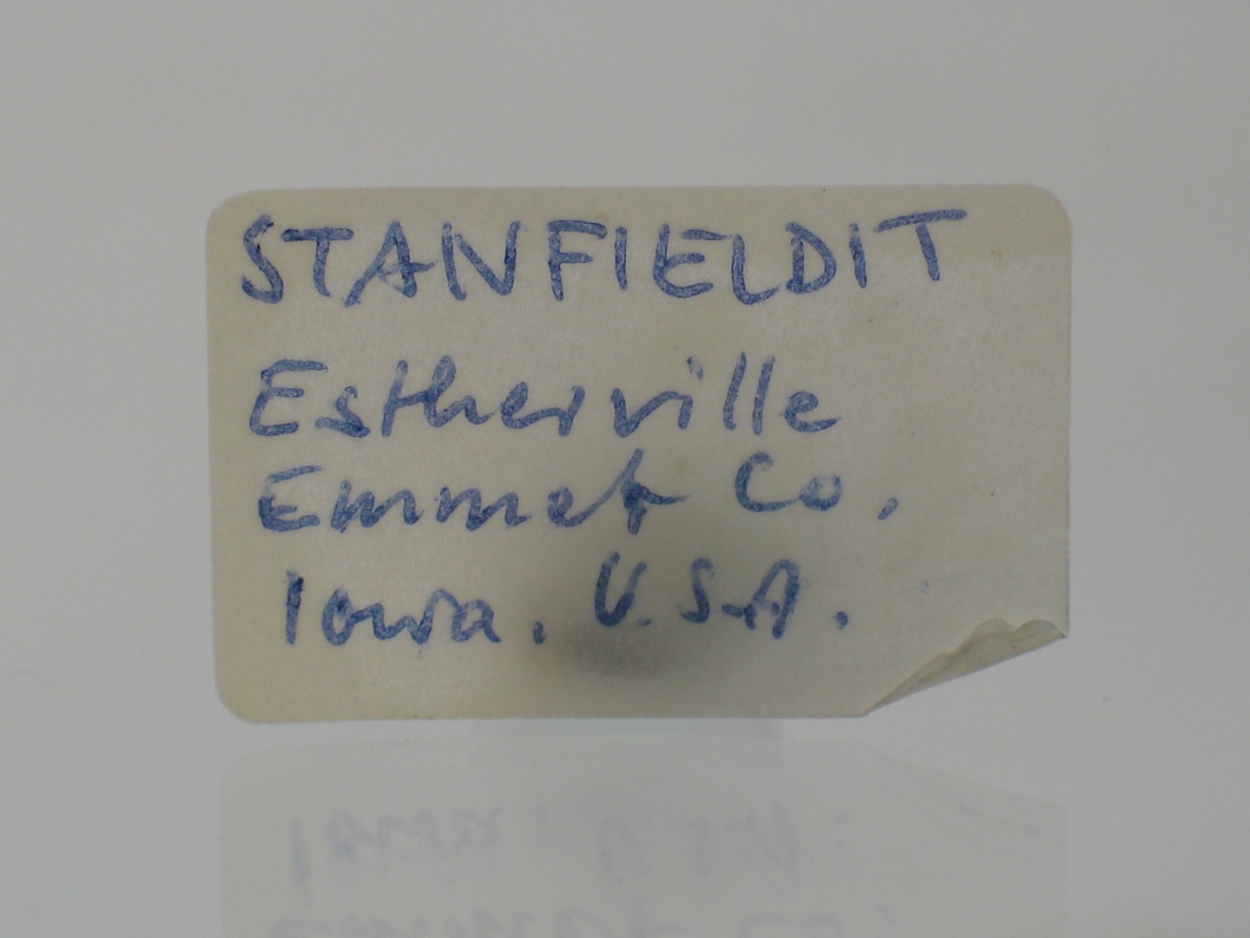 STANFIELDIT
Estherville
Emmet Co.
Iowa. U.S.A.